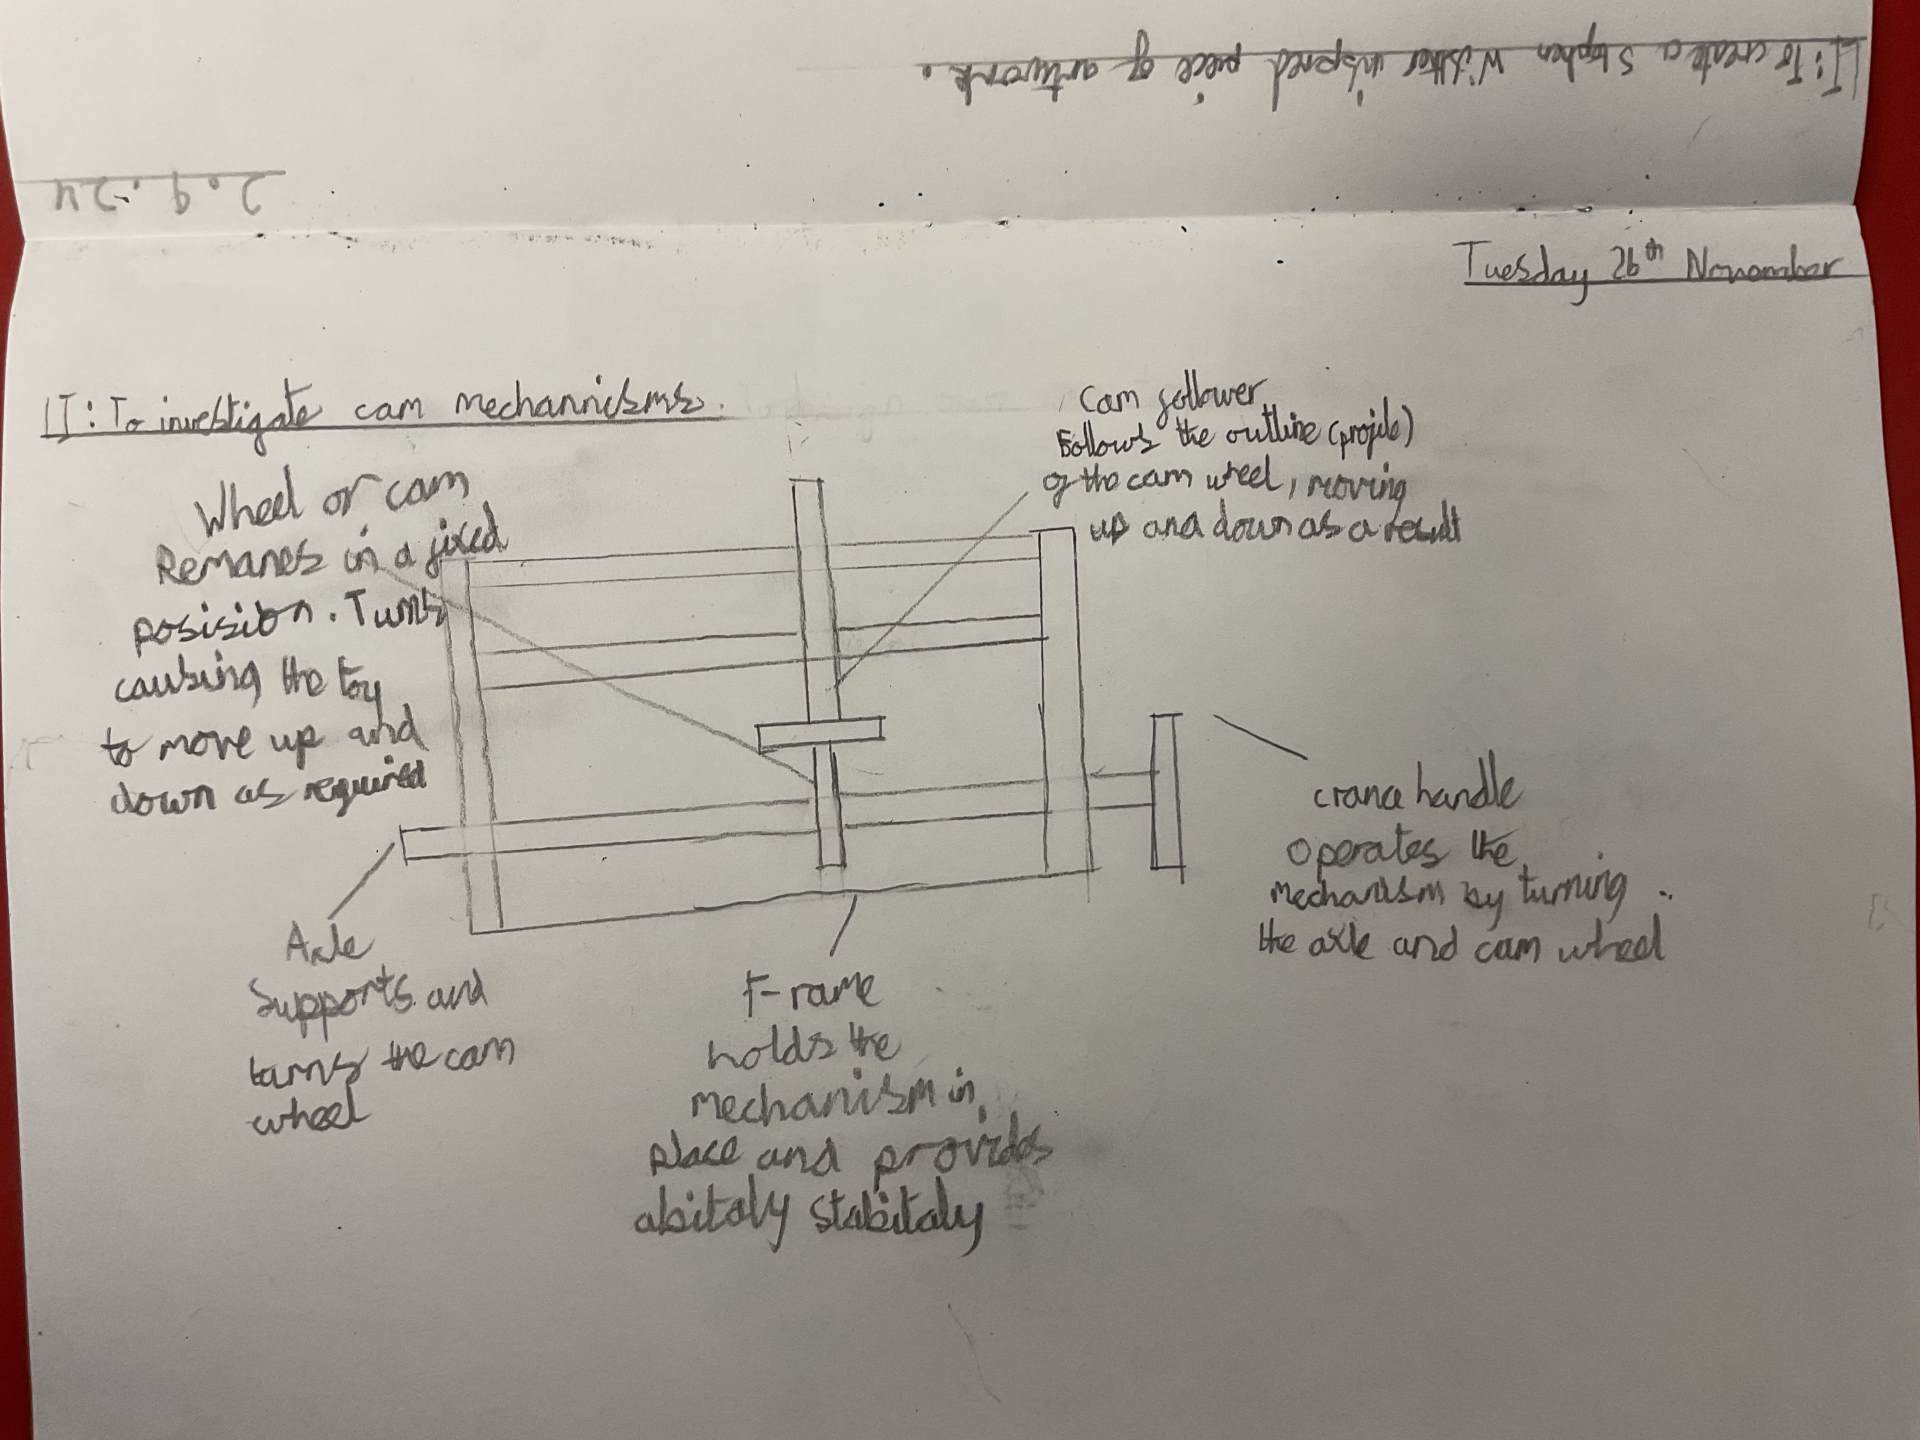 LI: To create a Stephen Wilther inspired piece of artwork.
2.9.24
Tuesday 26th November
LI: To investigate cam mechannisms.
Wheel or cam
Remanes in a fixed
posision. Turns
causing the toy
to move up and
down as required
Cam follower
Follows the outline (profile)
of the cam wheel, moving
up and down as a result
crance handle
operates the
mechanism by turning
the axle and cam wheel
Axle
Supports and
turns the cam
wheel
F-rame
holds the
mechanism in
place and provides
abitaly stabitaly